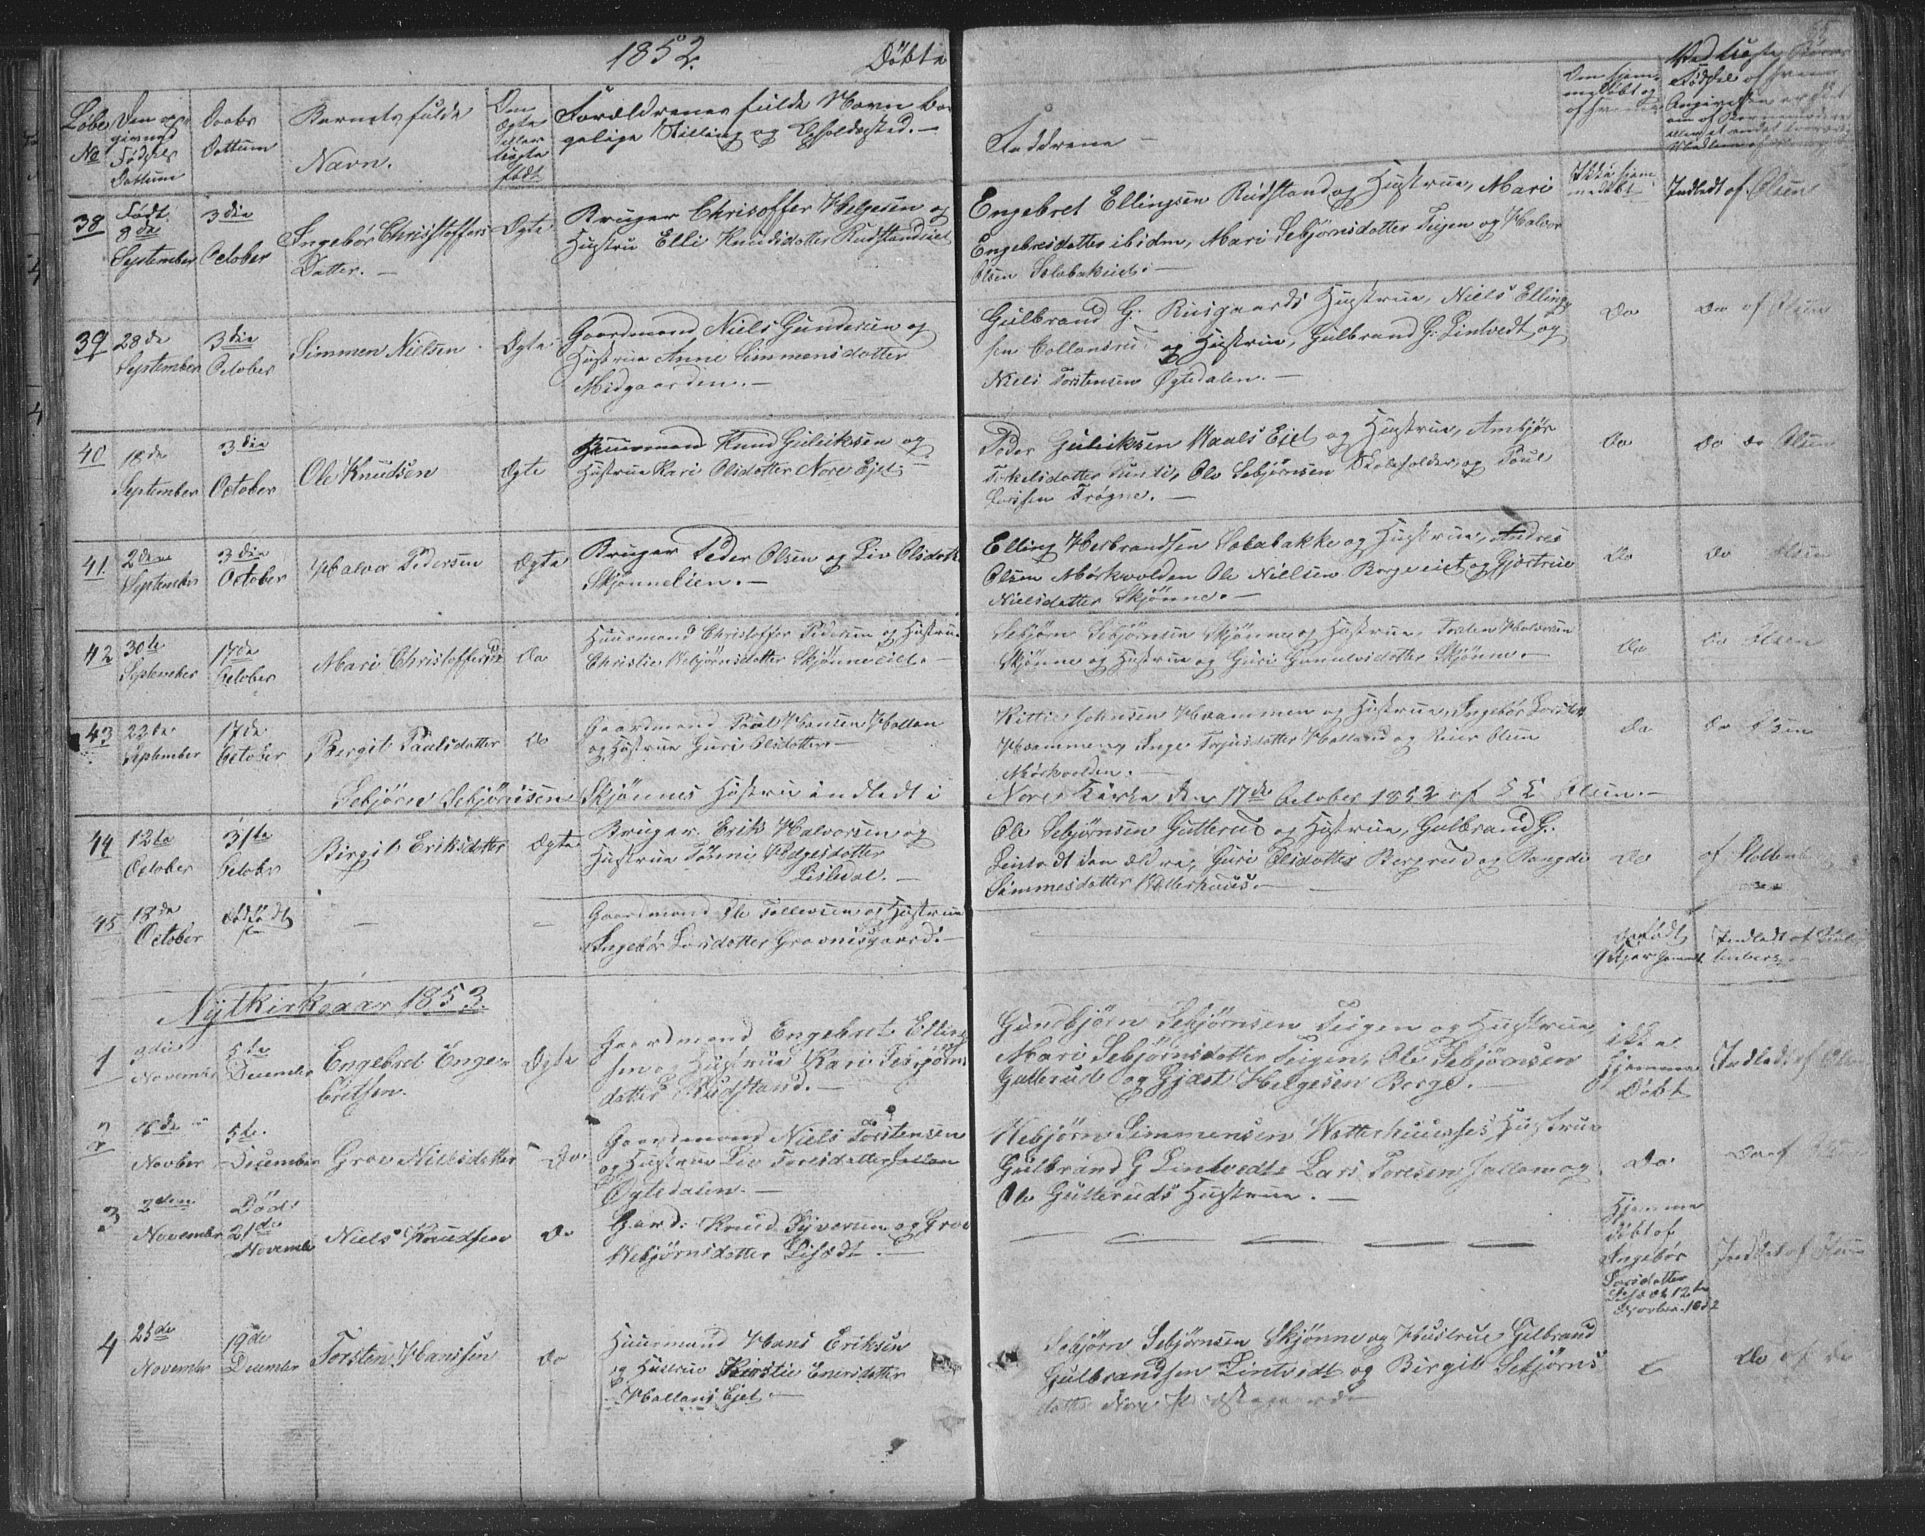 1852. Døbte
65
Løbe No
Den opgivne Fødsels Dattum
Daabs Dattum
Barnets fulde Navn.
Om Ægte eller Uægte født
Forældrenes fulde Navn borgelige Stilling og Opholdssted. —
Faddrene —
Om hjemmedøbt og af hvem
38 Født 8de September
3die October
Ingebør Christoffers Datter. —
Ægte
Bruger Chrisoffer Helgesen og
Hustru Elli Knudsdatter Rudstandeiet
Engebret Ellingsen Rudstand og Hustrue, Mari
Engebresdatter ibidm, Mari Sebjørnsdatter Teigen og Halvor
Olsen
Ikke hjemmedøbt
Indledt af Olsen
39 28de September
3die October
Simmen Nielsen
Ægte
Gaardmand Niels Gundersen og
Hustrue Anne Simmensdatter
Midgaarden. —
Gulbrand G. Ruusgaards Hustrue, Niels Elling
sen og Hustrue, Gulbrand G. Lintvedt og
Niels Torstensen Øgtedalen. —
Do
Do af Olsen
40 18de September
3die October
Ole Knudsen
Ægte
Huusmand Knud Guliksen og
Hustrue Kari Olsdatter Nore Ejet —
Peder Guliksen Ejet og Hustrue, Ambjør
Torkelsdatter Ole Sebjørnsen Skoleholder og Poul
Larssen Frøgne. —
Do
Do Do Olsen
41 2den September
3die October
Halvor Pedersen
Ægte
Bruger Peder Olsen og Liv Olsdatter
Skjønnelien. —
Elling Herbrandsen og Hustrue, Andres
Olsen Mørkvolden Ole Nielsen Borgeeiet og Gjertrue
Nielsdatter Skjønne. —
Do
Do Olsen
42 30te September
17de October
Mari Christoffersdtr
Do
Huusmand Christoffer Pedersen og Hustrue
Christie Webjørnsdatter Skjønneeiet. —
Sebjørn Sebjørnsen Skjønne og Hustrue, Torsten Halvorsen
Skjønne og Hustrue og Guri Gunulvsdatter Skjønne. —
Do
Do Olsen
43 22de September
17de October
Bergit Paalsdatter
Do
Gaardmand Paul Hansen Hallan
og Hustrue Guri Olsdatter —
Kittil Johnsen Hvammen og Hustrue, Ingebør Larsdatter
Hvammen, Inge Torjusdatter Holland og Reier Olsen
Mørkvolden. —
Do
Do Olsen
Sebjørn Sebjørnsen Skjønnes Hustrue indledt i
Nores Kirke den 17de October 1852 af Olsen. —
44 12te October
31te October
Birgit Eriksdatter
Ægte
Bruger Erik Halvorsen og
Hustrue Tønne Helgesdatter
Lisledal. —
Ole Sebjørnsen Gutterud og Hustrue, Gulbrand G.
Lintvedt den ældre, Guri Olsdatter Bergrud og Rangdi
Simmesdatter Wetterhuus. —
Do
af Stoltenberg
45 18de October
Dødfødt
—
—
Gaardmand Ole Tollefsen og Hustrue
Ingebør Larsdatter Gravnisgaard. —
Indledt af Stoltenberg
Nytkirkeaar 1853.
1 November
5te December
Engebret Engebritsen.
Ægte
Gaardmand Engebret Elling
sen og Hustrue Kari Sebjørns
datter Rudstand. —
Gundbjørn Sebjørnsen Teigen og Hustrue
Mari Sebjørnsdatter Teigen, Ole Sebjørnsen
Gutterud og Gjest Helgesen Borge. —
ikke hjemmedøbt
Indledt af Olsen
2 Novber
5te December
Grov Nielsdatter
Do
Gaardmand Niels Torstensen
og Hustrue Liv Toresdatter
Øgtedalen. —
Webjørn Simmensen Wetterhuuses Hustrue
Gulbrand G Lintvedt Lars Toresen og
Ole Gutteruds Hustrue. —
Do
Do af
3 2den November
Død 21de November
Niels Knudsen
Do
Gard: Knud Syversen og Grov
Webjørnsdatter —
Hjemmedøbt af Ingebør Larsdatter
Indledt af Olsen
4 25de November
19de December
Torsten Hanssen
Do
Huusmand Hans Eriksen
og Hustrue Kirstie Enersdatter
Hallans Ejet —
Sebjørn Sebjørnsen Skjønne og Hustrue Gulbrand
Gulbrandsen Lintvedt og Birgit Sebjørns
datter Nore
Do af Do